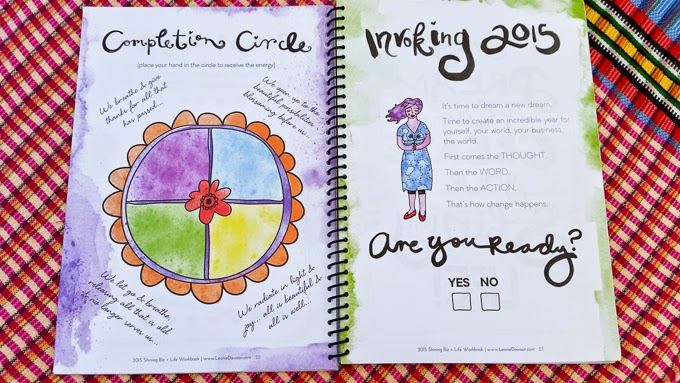 Completion Circle
{place your hand in the circle to receive the energy}
We breathe & give
thanks for all that
has passed...
We open up to the
beautiful possibilities
blossoming before us...
We let go & breathe,
releasing all that is old
& no longer serves us...
We radiate in light &
joy... all is beautiful &
all is well...
2015 Shining Biz + Life Workbook | www.LeonieDawson.com
Invoking 2015
It's time to dream a new dream.
Time to create an incredible year for
yourself, your world, your business,
the world.
First comes the THOUGHT.
Then the WORD.
Then the ACTION.
That's how change happens.
Are you Ready?
YES NO
2015 Shining Biz + Life Workbook | www.LeonieDawson.com